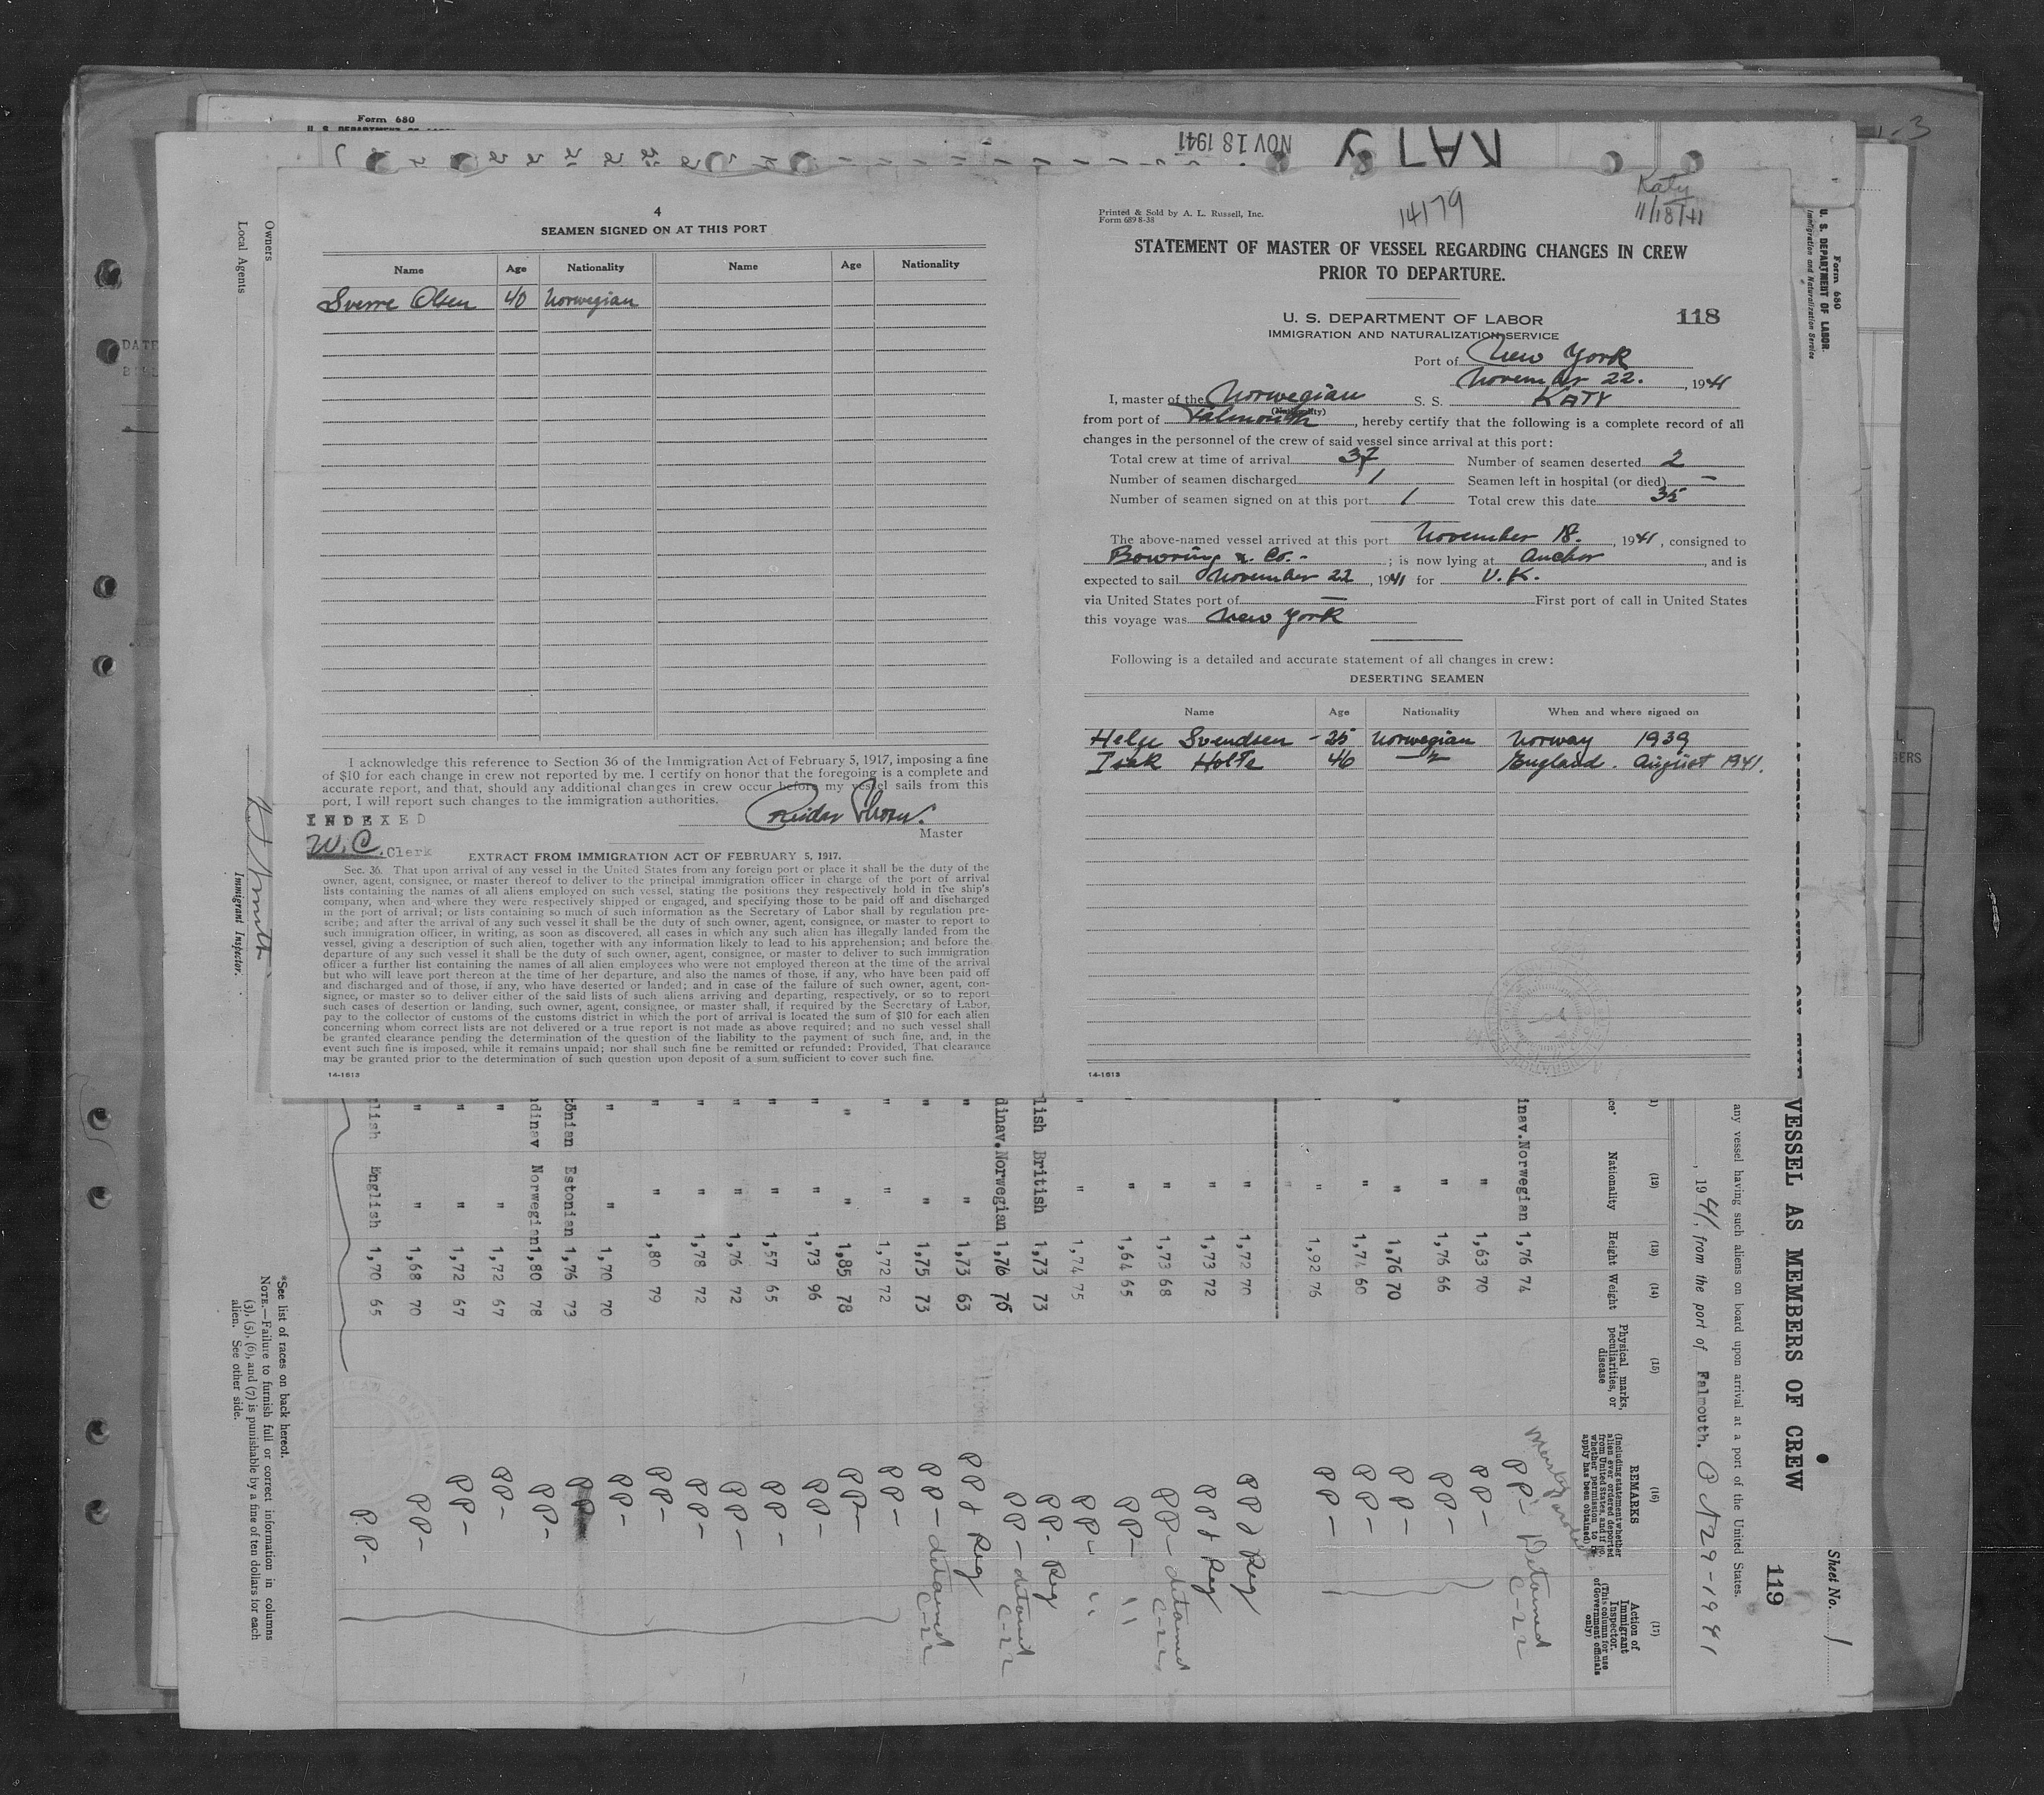 Form 680
NOV 18 1941
KATY
4
SEAMEN SIGNED ON AT THIS PORT
Name Age Nationality Name Age Nationality
Sverre Olsen 40 Norwegian
I acknowledge this reference to Section 36 of the Immigration Act of February 5, 1917, imposing a fine
of $10 for each change in crew not reported by me. I certify on honor that the foregoing is a complete and
accurate report, and that, should any additional changes in crew occur before my vessel sails from this
port, I will report such changes to the immigration authorities.
INDEXED
W.C. Clerk
Master
EXTRACT FROM IMMIGRATION ACT OF FEBRUARY 5, 1917.
Sec. 36. That upon arrival of any vessel in the United States from any foreign port or place it shall be the duty of the
owner, agent, consignee, or master thereof to deliver to the principal immigration officer in charge of the port of arrival
lists containing the names of all aliens employed on such vessel, stating the positions they respectively hold in the ship's
company, when and where they were respectively shipped or engaged, and specifying those to be paid off and discharged
in the port of arrival; or lists containing so much of such information as the Secretary of Labor shall by regulation pre-
scribe; and after the arrival of any such vessel it shall be the duty of such owner, agent, consignee, or master to report to
such immigration officer, in writing, as soon as discovered, all cases in which any such alien has illegally landed from the
vessel, giving a description of such alien, together with any information likely to lead to his apprehension; and before the
departure of any such vessel it shall be the duty of such owner, agent, consignee, or master to deliver to such immigration
officer a further list containing the names of all alien employees who were not employed thereon at the time of the arrival
but who will leave port thereon at the time of her departure, and also the names of those, if any, who have been paid off
and discharged and of those, if any, who have deserted or landed; and in case of the failure of such owner, agent, con-
signee, or master so to deliver either of the said lists of such aliens arriving and departing, respectively, or so to report
such cases of desertion or landing, such owner, agent, consignee, or master shall, if required by the Secretary of Labor,
pay to the collector of customs of the customs district in which the port of arrival is located the sum of $10 for each alien
concerning whom correct lists are not delivered or a true report is not made as above required; and no such vessel shall
be granted clearance pending the determination of the question of the liability to the payment of such fine, and, in the
event such fine is imposed, while it remains unpaid; nor shall such fine be remitted or refunded: Provided, That clearance
may be granted prior to the determination of such question upon deposit of a sum sufficient to cover such fine.
14-1613
Printed & Sold by A. L. Russell, Inc.
Form 689 8-38
14179
Katy
11/18/41
STATEMENT OF MASTER OF VESSEL REGARDING CHANGES IN CREW
PRIOR TO DEPARTURE.
U. S. DEPARTMENT OF LABOR
118
IMMIGRATION AND NATURALIZATION SERVICE
Port of New York
November 22. , 1941
I, master of the Norwegian S. S. KATY
(Nationality)
from port of Falmouth , hereby certify that the following is a complete record of all
changes in the personnel of the crew of said vessel since arrival at this port:
Total crew at time of arrival 37 Number of seamen deserted 2
Number of seamen discharged 1 Seamen left in hospital (or died) –
Number of seamen signed on at this port 1 Total crew this date 35
The above-named vessel arrived at this port November 18. , 1941 , consigned to
Bowring & Co. - ; is now lying at Anchor , and is
expected to sail November 22 , 1941 for U.K.
via United States port of — First port of call in United States
this voyage was New York
Following is a detailed and accurate statement of all changes in crew:
DESERTING SEAMEN
Name Age Nationality When and where signed on
Helge Svendsen - 25 Norwegian Norway 1939
Isak Holte 46 -"- England. August 1941.
14-1613
Owners
Local Agents
Immigrant Inspector.
*See list of races on back hereof.
NOTE.—Failure to furnish full or correct information in columns
(3), (5), (6), and (7) is punishable by a fine of ten dollars for each
alien. See other side.
Form 680
U. S. DEPARTMENT OF LABOR
Immigration and Naturalization Service
Sheet No. 1
119
VESSEL AS MEMBERS OF CREW
any vessel having such aliens on board upon arrival at a port of the United States.
, 1941, from the port of Falmouth. Oct 29-1941
(12) (13) (14) (15) (16) (17)
Nationality Height Weight Physical marks, peculiarities, or disease REMARKS (Including statement whether alien ever ordered deported from United States, and if so, whether permission to reapply has been obtained) Action of Immigrant Inspector. (This column for use of Government officials only)
inav. Norwegian 1,76 74 PP - Detained C-22
" 1,63 70 PP -
" 1,76 66 PP -
" 1,76 70 PP -
" 1,74 60 PP -
" 1,92 76 PP -
" 1,72 70 PP & Reg
" 1,73 72 PP & Reg
" 1,73 68 PP - detained C-22
" 1,64 65 PP - "
" 1,74 75 PP - "
lish British 1,73 73 PP - Reg
dinav. Norwegian 1,76 75 PP - detained C-22
" " 1,73 63 PP & Reg
" " 1,75 73 PP - detained C-22
" " 1,72 72 PP -
" " 1,85 78 PP -
" " 1,73 96 PP -
" " 1,57 65 PP -
" " 1,76 72 PP -
" " 1,78 72 PP -
" " 1,80 79 PP -
" " 1,70 70 PP -
tonian Estonian 1,76 73 PP -
dinav Norwegian 1,80 78 PP -
" " 1,72 67 PP -
" " 1,72 67 PP -
" " 1,68 70 PP -
lish English 1,70 65 PP -